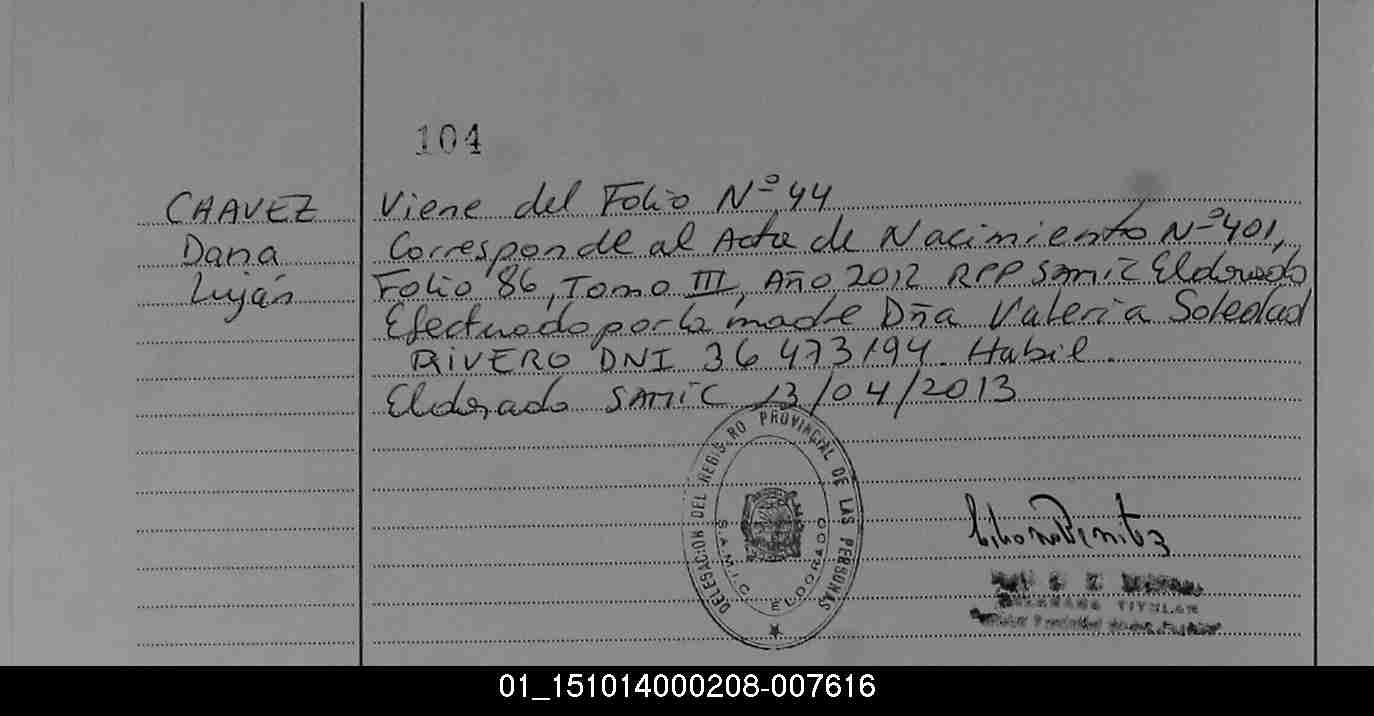 104
CHAVEZ Viene del Folio Nº 44
Dana Corresponde al Acta de Nacimiento Nº 401,
Luján Folio 86, Tomo III, Año 2012 RPP Samic Eldorado
Efectuado por la madre Dña Valeria Soledad
RIVERO DNI 36 473194. Habil.
Eldorado SAMIC 13/04/2013
DELEGACION DEL REGISTRO PROVINCIAL DE LAS PERSONAS
S.A.M.I.C. ELDORADO
Benitez
TITULAR
01_151014000208-007616